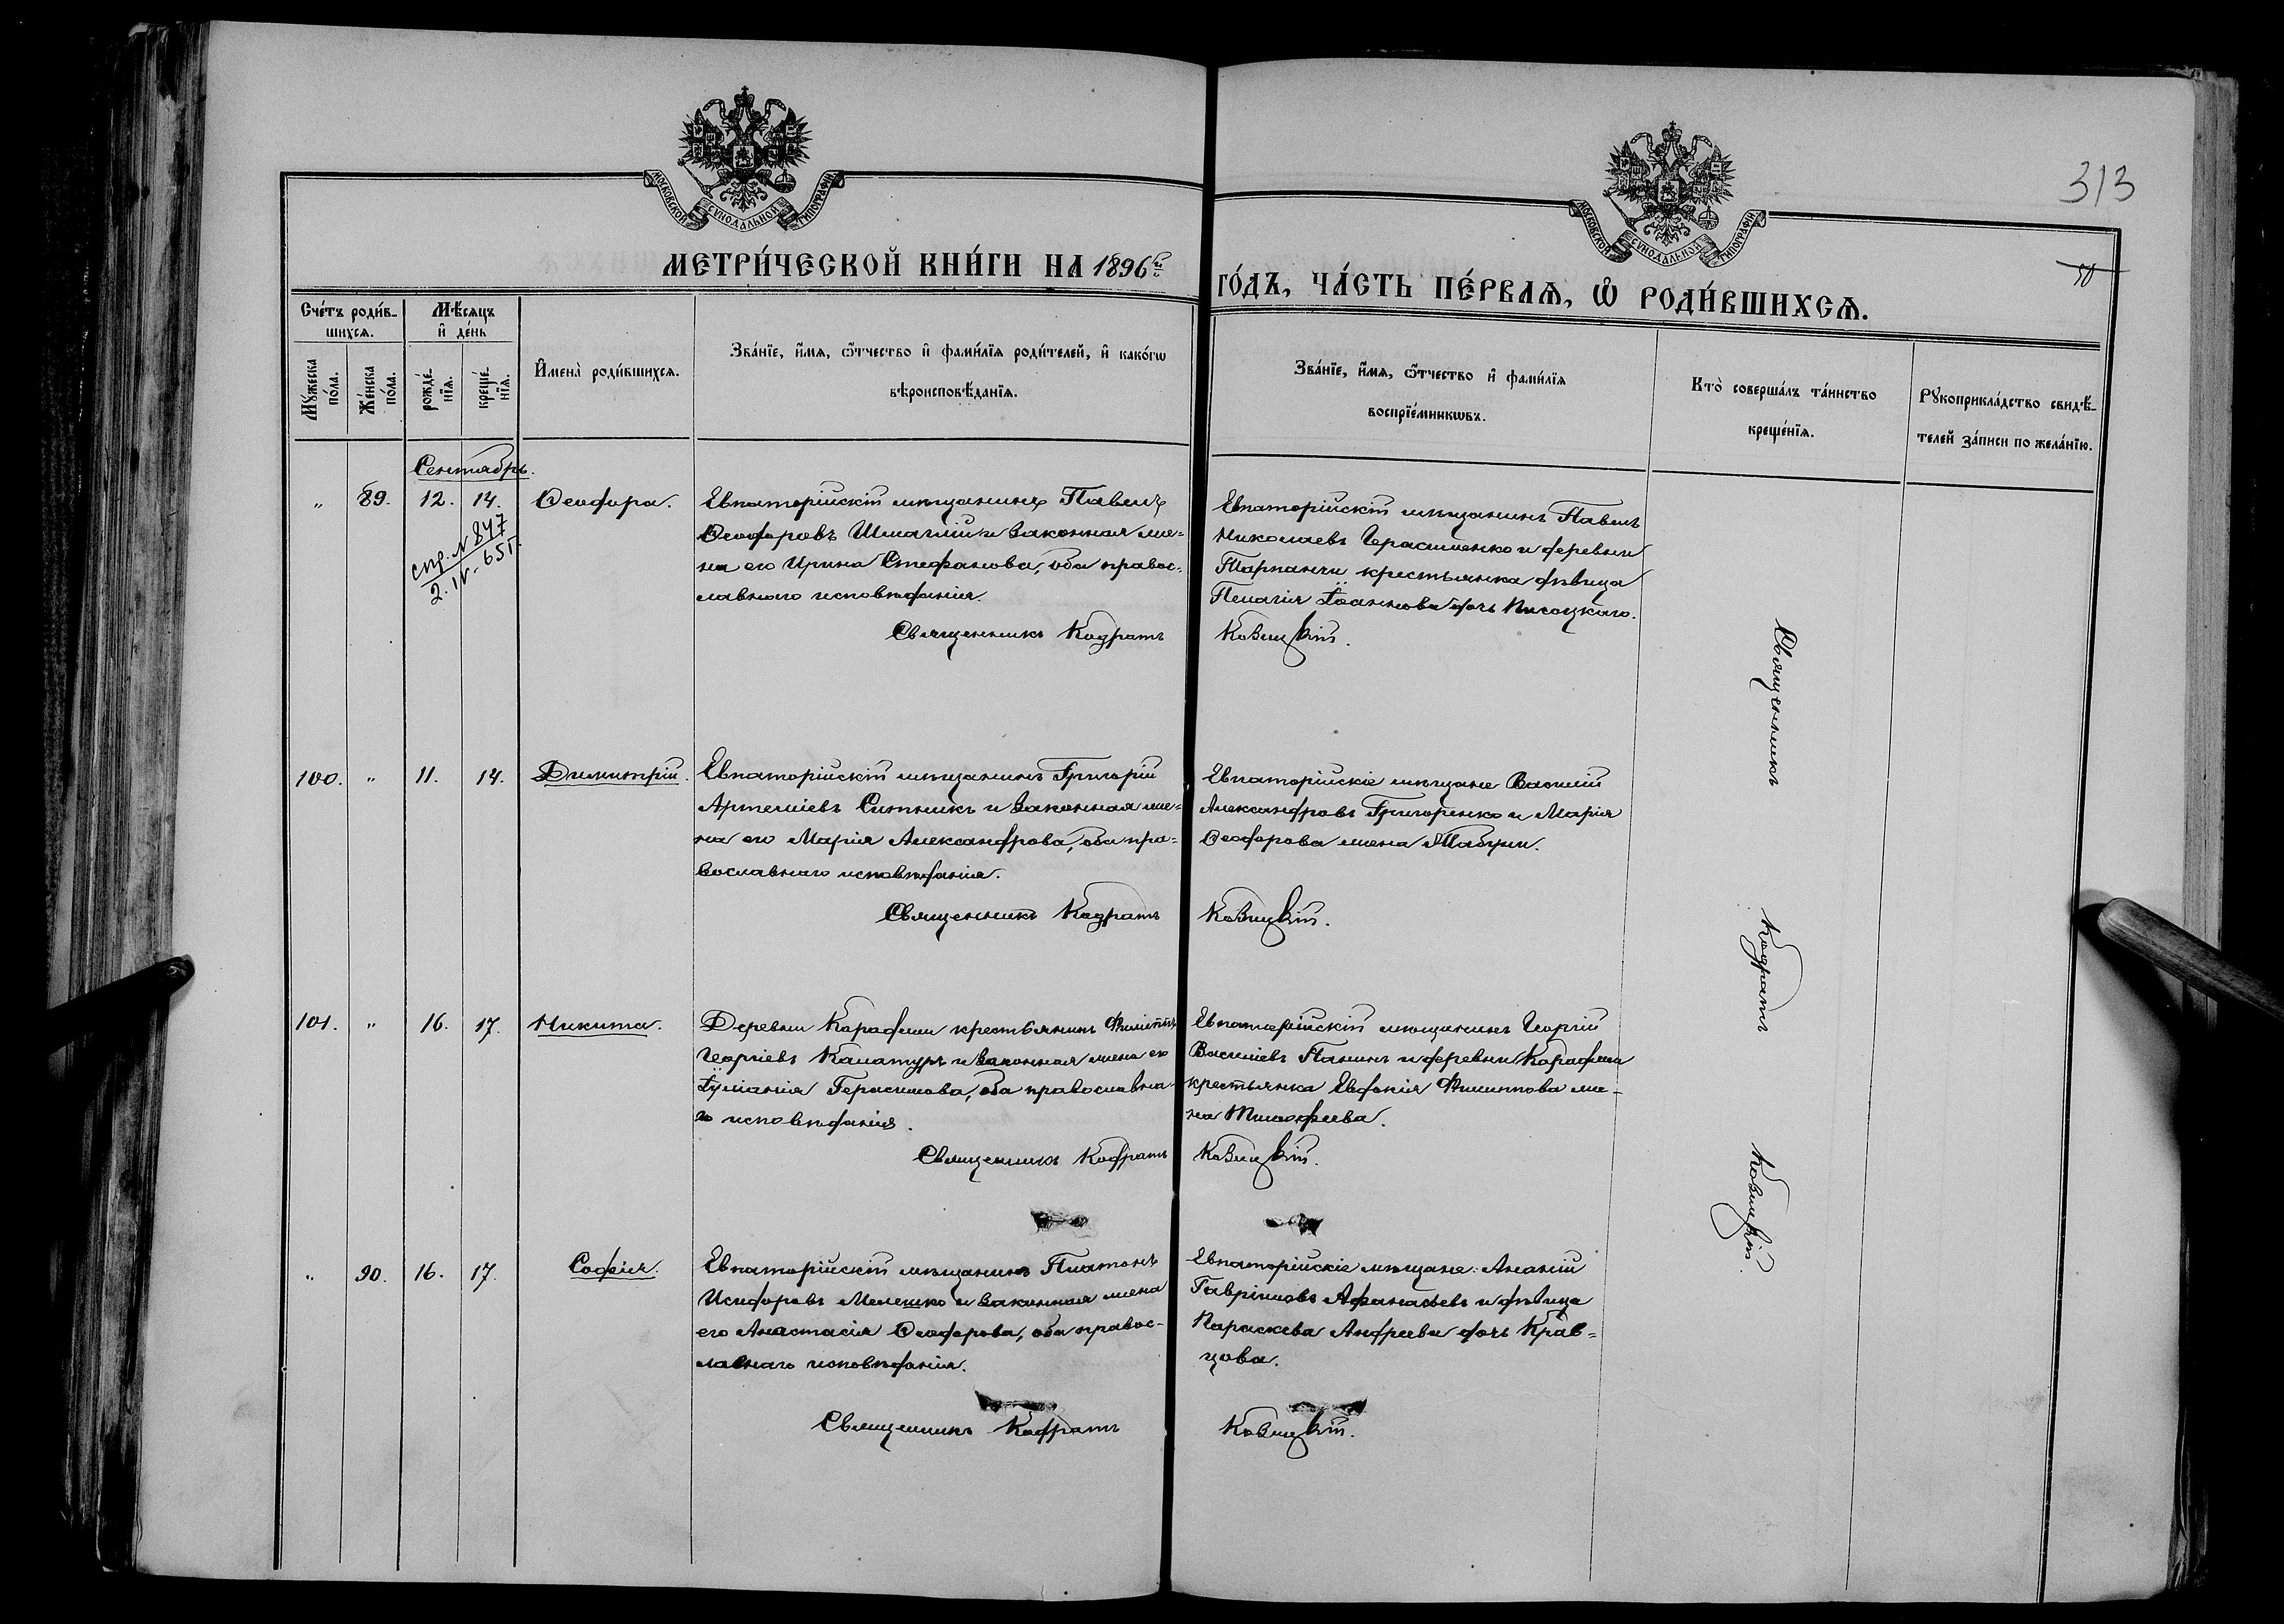 313
50
МОСКОВСКОЙ СѴНОДАЛЬНОЙ ТИПОГРАФІИ
МОСКОВСКОЙ СѴНОДАЛЬНОЙ ТИПОГРАФІИ
МЕТРИ́ЧЕСКОЙ КНИ́ГИ НА 1896й
ГО́ДЪ, ЧА́СТЬ ПЕ́РВАѦ, Ѡ҆ РОДИ́ВШИХСѦ.
Сче́тъ роди́в-
шихсѧ.
Мѣ́сяцъ
и҆ де́нь
Мꙋ́жеска по́ла.
Же́нска по́ла.
рожде́-нїѧ.
креще́-нїѧ.
И҆мена̀ роди́вшихсѧ.
Зва́нїе, и҆́мѧ, ѻ҆́тчество и҆ фами́лїѧ роди́телей, и҆ како́гѡ
вѣроисповѣ́данїѧ.
Зва́нїе, и҆́мѧ, ѻ҆́тчество и҆ фами́лїѧ
воспрїе́мникѡвъ.
Кто̀ соверша́лъ та́инство
креще́нїѧ.
Рꙋкоприкла́дство свидѣ́-
телей за́писи по жела́нїю.
Сентябрь.
„ 89. 12. 14. Ѳеодора.
спр. N 847
2.IV-65 г.
Евпаторійскій мѣщанинъ Павелъ
Ѳеодоровъ и законная же-
на его Ирина Стефанова, оба правос-
лавнаго исповѣданія.
Священникъ Кодратъ
Евпаторійскій мѣщанинъ Павелъ
Николаевъ Герасименко и деревни
Тарпанчи крестьянка дѣвица
Пелагія Іоаннова дочь Писоцкаго.
Козицкій.
100. „ 11. 14. Димитрій.
Евпаторійскій мѣщанинъ Григорій
Артеміевъ Ситникъ и законная же-
на его Марія Александрова, оба пра-
вославнаго исповѣданія.
Священникъ Кодратъ
Евпаторійскіе мѣщане Василій
Александровъ Григоренко и Марія
Ѳеодорова жена Табунщ.
Козицкій.
101. „ 16. 17. Никита.
Деревни Караджи крестьянинъ Филиппъ
Георгіевъ Калатуръ и законная жена его
Іуліанія Герасимова, оба православна-
го исповѣданія.
Священникъ Кодратъ
Евпаторійскій мѣщанинъ Георгій
Василіевъ Панинъ и деревни Караджи
крестьянка Евдокія Филиппова же-
на Тимофеева.
Козицкій.
„ 90. 16. 17. Софія.
Евпаторійскій мѣщанинъ Платонъ
Исидоровъ Мелешко и законная жена
его Анастасія Ѳеодорова, оба правос-
лавнаго исповѣданія.
Священникъ Кодратъ
Евпаторійскіе мѣщане: Ананій
Гавріиловъ Афанасьевъ и дѣвица
Параскева Андреева дочь Крав-
цова.
Козицкій.
Священникъ Кодратъ Козицкій.